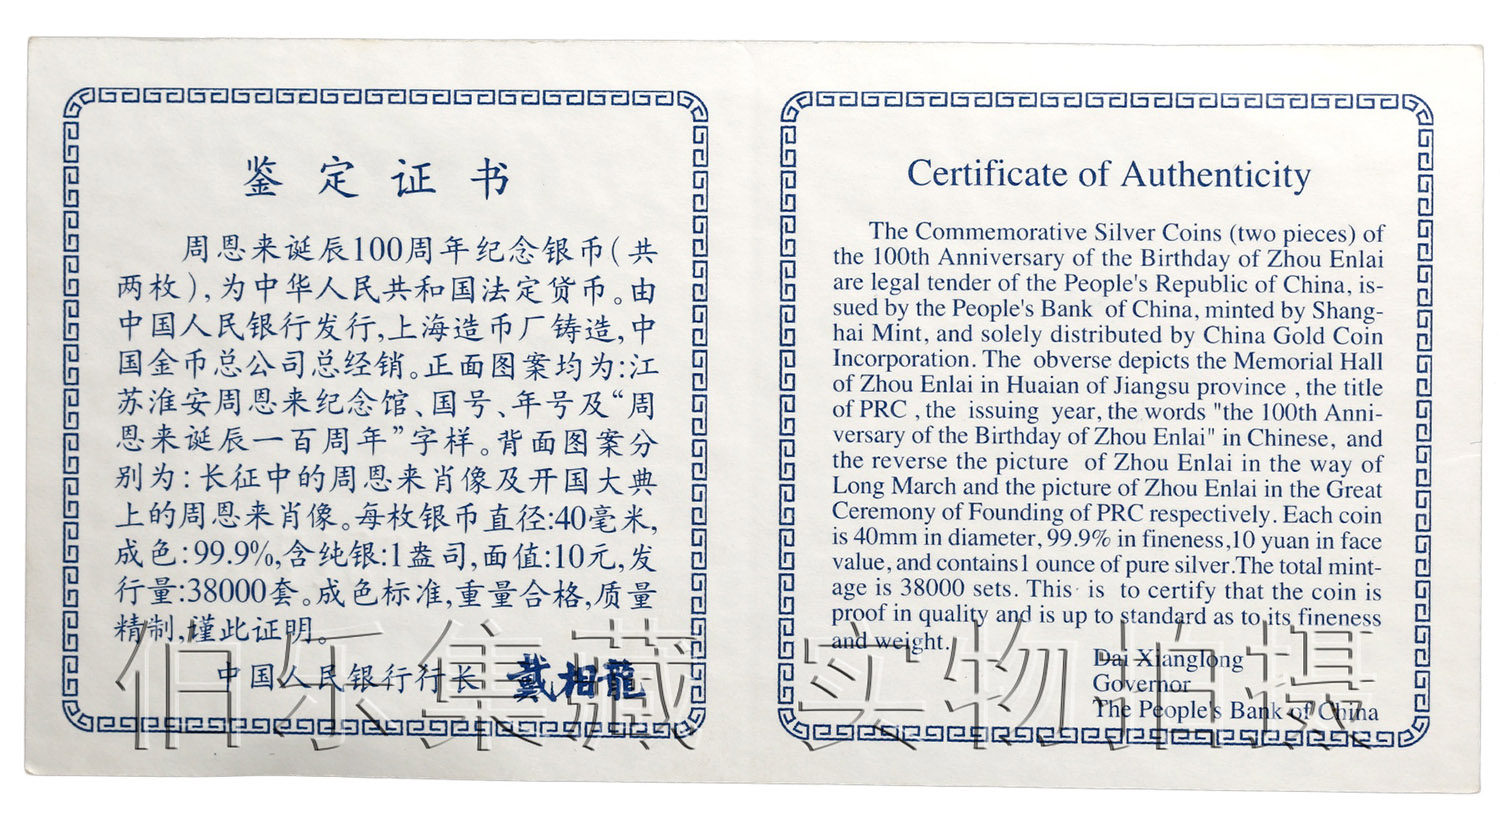 鉴定证书
周恩来诞辰100周年纪念银币(共
两枚),为中华人民共和国法定货币。由
中国人民银行发行,上海造币厂铸造,中
国金币总公司总经销。正面图案均为:江
苏淮安周恩来纪念馆、国号、年号及“周
恩来诞辰一百周年”字样。背面图案分
别为:长征中的周恩来肖像及开国大典
上的周恩来肖像。每枚银币直径:40毫米,
成色:99.9%,含纯银:1盎司,面值:10元,发
行量:38000套。成色标准,重量合格,质量
精制,谨此证明。
中国人民银行行长 戴相龍
Certificate of Authenticity
The Commemorative Silver Coins (two pieces) of
the 100th Anniversary of the Birthday of Zhou Enlai
are legal tender of the People's Republic of China, is-
sued by the People's Bank of China, minted by Shang-
hai Mint, and solely distributed by China Gold Coin
Incorporation. The obverse depicts the Memorial Hall
of Zhou Enlai in Huaian of Jiangsu province , the title
of PRC , the issuing year, the words "the 100th Anni-
versary of the Birthday of Zhou Enlai" in Chinese, and
the reverse the picture of Zhou Enlai in the way of
Long March and the picture of Zhou Enlai in the Great
Ceremony of Founding of PRC respectively. Each coin
is 40mm in diameter, 99.9% in fineness,10 yuan in face
value, and contains1 ounce of pure silver.The total mint-
age is 38000 sets. This is to certify that the coin is
proof in quality and is up to standard as to its fineness
and weight.
Dai Xianglong
Governor
The People's Bank of China
伯乐集藏 实物拍摄